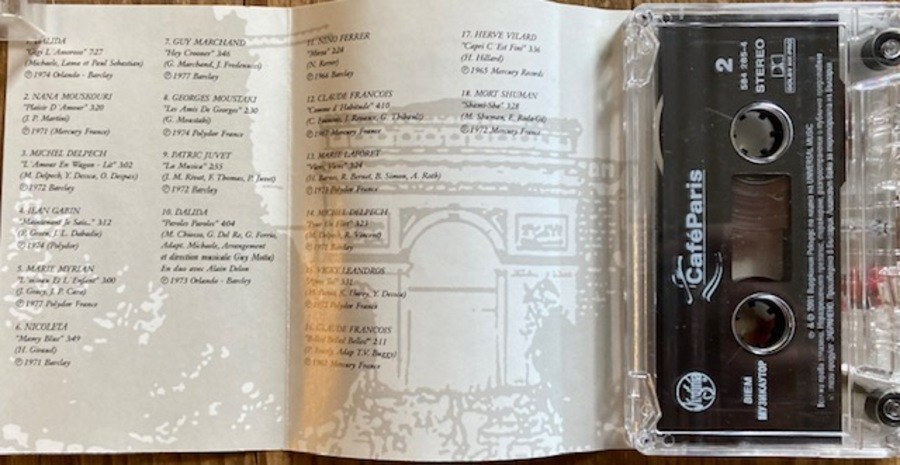 1. DALIDA
"Gigi L'Amoroso" 7:27
(Michaele, Lama et Paul Sebastian)
℗ 1974 Orlando - Barclay
2. NANA MOUSKOURI
"Plaisir D'Amour" 3:20
(J. P. Martini)
℗ 1971 (Mercury France)
3. MICHEL DELPECH
"L'Amour En Wagon - Lit" 3:02
(M. Delpech, Y. Dessca, O. Despax)
℗ 1972 Barclay
4. JEAN GABIN
"Maintenant Je Sais.." 3:12
(P. Green, J. L. Dabadie)
℗ 1974 (Polydor)
5. MARIE MYRIAN
"L'oiseau Et L'Enfant" 3:00
(J. Gracy, J. P. Cara)
℗ 1977 Polydor France
6. NICOLETA
"Mamy Blue" 3:49
(H. Giraud)
℗ 1971 Barclay
7. GUY MARCHAND
"Hey Crooner" 3:46
(G. Marchand, J. Fredenucci)
℗ 1977 Barclay
8. GEORGES MOUSTAKI
"Les Amis De Georges" 2:30
(G. Moustaki)
℗ 1974 Polydor France
9. PATRIC JUVET
"La Musica" 2:55
(J. M. Rivat, F. Thomas, P. Juvet)
℗ 1972 Barclay
10. DALIDA
"Paroles Paroles" 4:04
(M. Chiosso, G. Del Re, G. Ferrio,
Adapt. Michaele, Arrangement
et direction musicale: Guy Motta)
En duo avec Alain Delon
℗ 1973 Orlando - Barclay
11. NINO FERRER
"Mirza" 2:24
(N. Ferrer)
℗ 1966 Barclay
12. CLAUDE FRANCOIS
"Comme d'Habitude" 4:10
(C. Francois, J. Revaux, G. Thibault)
℗ 1967 Mercury France
13. MARIE LAFORET
"Viens, Viens"
(H. Barnes, R. Bernet, B. Simon, A. Roth)
℗ 1973 Polydor France
14. MICHEL DELPECH
"Pour Un Flirt" 3:23
(M. Delpech, R. Vincent)
℗ 1971 Barclay
15. VICKY LEANDROS
"Apres Toi" 3:31
Y. Dessca)
℗ 1972 Polydor France
16. CLAUDE FRANCOIS
"Belles! Belles! Belles!" 2:11
(P. Everly, Adap T.V. Buggy)
Mercury France
17. HERVE VILARD
"Capri C'Est Fini" 3:36
(H. Hillard)
℗ 1965 Mercury Records
18. MORT SHUMAN
"Shami-Sha" 3:28
(M. Shuman, E. Roda-Gil)
℗ 1972 Mercury France
2
584 285-4
STEREO
DOLBY HX PRO
CaféParis
Virginia
BIEM
МУЗИКАУТОР
℗ & © 2001 Вирджиния Рекърдс по лиценз на UNIVERSAL MUSIC